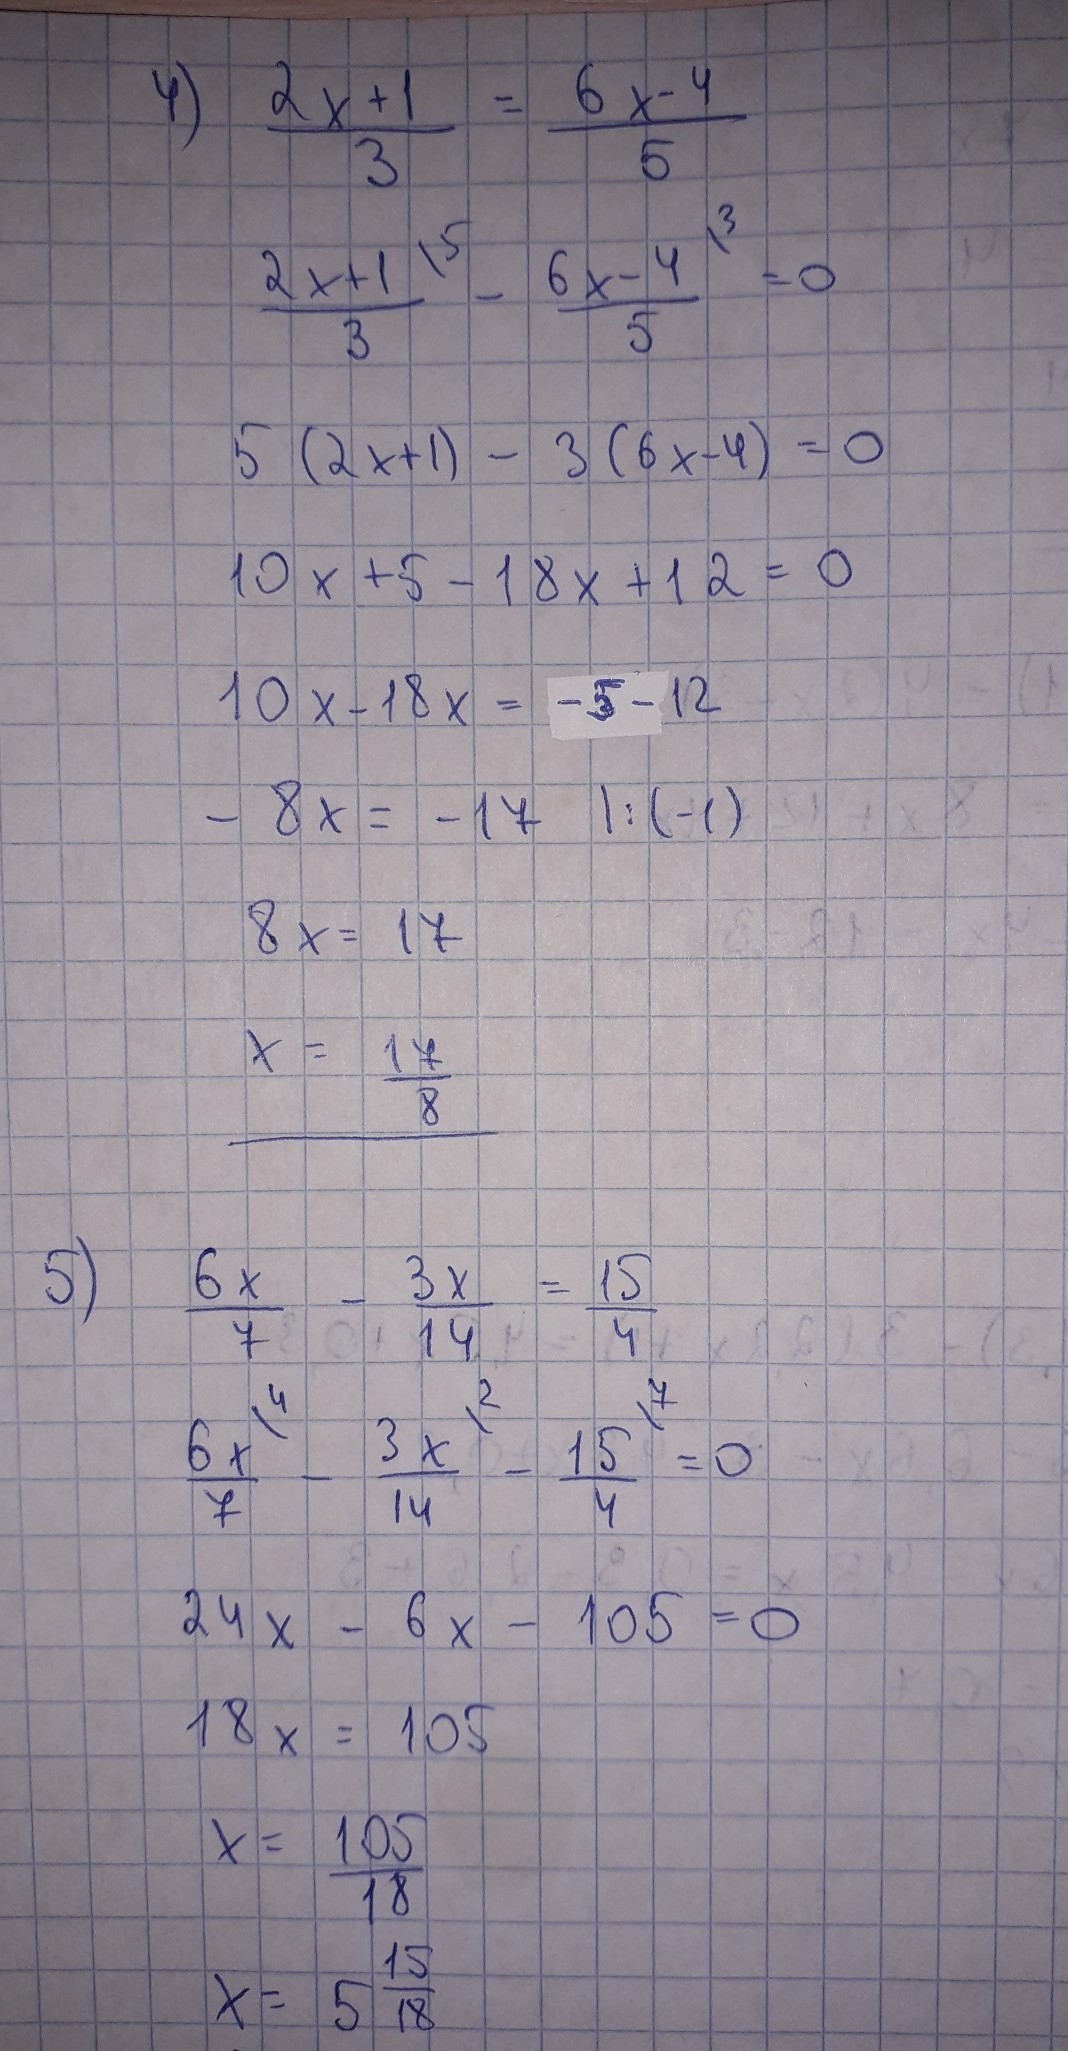 4) (2x+1)/3 = (6x-4)/5
(2x+1)/3 \5 - (6x-4)/5 \3 = 0
5 (2x+1) - 3 (6x-4) = 0
10x + 5 - 18x + 12 = 0
10x - 18x = -5 - 12
- 8x = -17 |:(-1)
8x = 17
x = 17/8
5) 6x/7 - 3x/14 = 15/4
6x/7 \4 - 3x/14 \2 - 15/4 \7 = 0
24x - 6x - 105 = 0
18x = 105
x = 105/18
x = 5 15/18